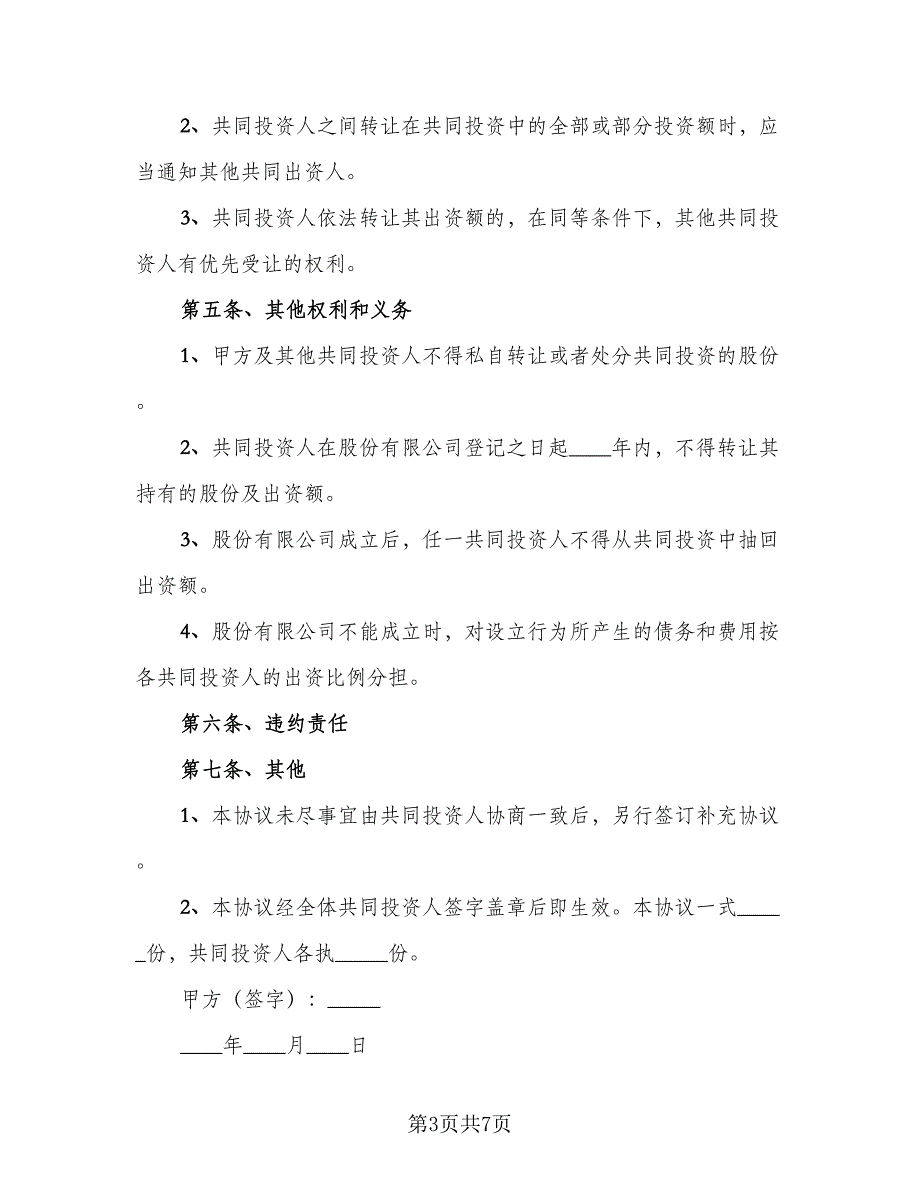 2、共同投资人之间转让在共同投资中的全部或部分投资额时，应
当通知其他共同出资人。
3、共同投资人依法转让其出资额的，在同等条件下，其他共同投
资人有优先受让的权利。
第五条、其他权利和义务
1、甲方及其他共同投资人不得私自转让或者处分共同投资的股份
。
2、共同投资人在股份有限公司登记之日起____年内，不得转让其
持有的股份及出资额。
3、股份有限公司成立后，任一共同投资人不得从共同投资中抽回
出资额。
4、股份有限公司不能成立时，对设立行为所产生的债务和费用按
各共同投资人的出资比例分担。
第六条、违约责任
第七条、其他
1、本协议未尽事宜由共同投资人协商一致后，另行签订补充协议
。
2、本协议经全体共同投资人签字盖章后即生效。本协议一式____
_份，共同投资人各执_____份。
甲方（签字）：_____
____年____月____日
第3页共7页